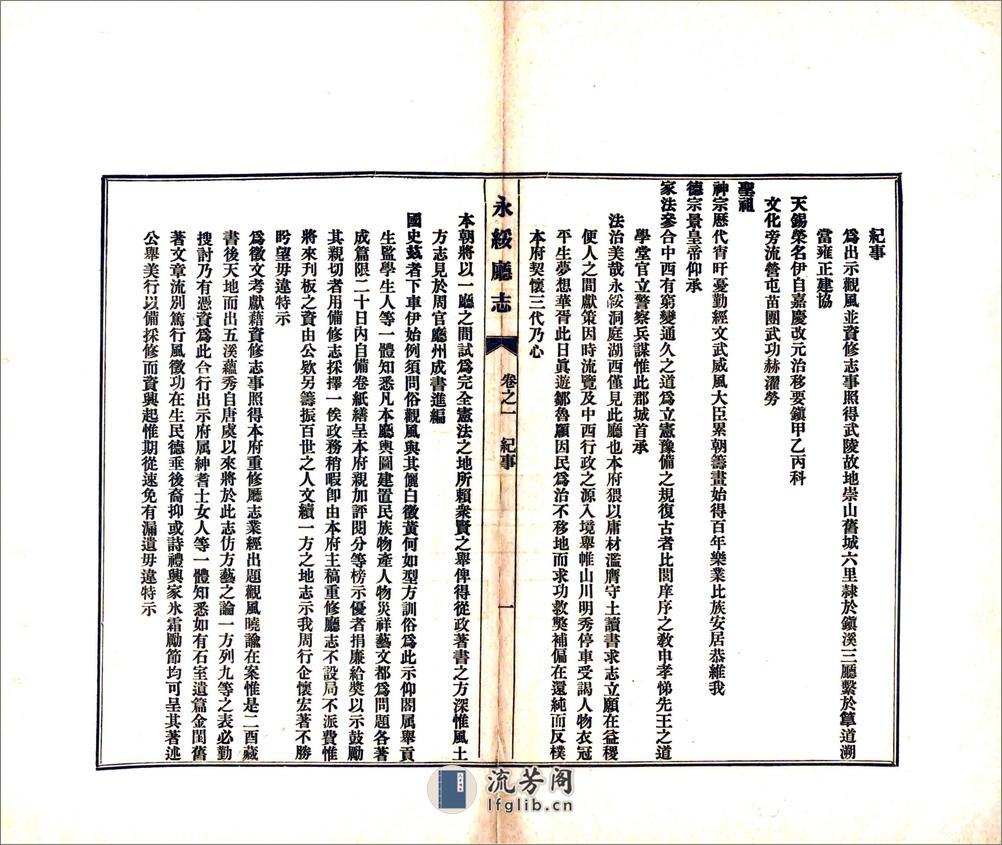 紀事
為出示觀風並資修志事照得武陵故地崇山舊城六里隸於鎮溪三廳繫於筸道溯
當雍正建協
天錫榮名伊自嘉慶改元治移要鎮甲乙丙科
文化旁流營屯苗團武功赫濯勞
聖祖
神宗歷代宵旰憂勤經文武威風大臣累朝籌畫始得百年樂業比族安居恭維我
德宗景皇帝仰承
家法參合中西有窮變通久之道為立憲豫備之規復古者比閭庠序之教申孝悌先王之道
學堂官立警察兵謀惟此郡城首承
法治美哉永綏洞庭湖西僅見此廳也本府猥以庸材濫膺守土讀書求志立願在益稷
便人之間獻策因時流覽及中西行政之源入境舉帷山川明秀停車受謁人物衣冠
平生夢想華胥此日眞遊鄒魯願因民為治不移地而求功救獘補偏在還純而反樸
本府契懷三代乃心
永綏廳志 卷之一 紀事 一
本朝將以一廳之間試為完全憲法之地所賴衆賢之舉俾得從政著書之方深惟風土
方志見於周官廳州成書進編
國史茲者下車伊始例須問俗觀風與其儷白徵黃何如型方訓俗為此示仰閤属舉貢
生監學生人等一體知悉凡本廳輿圖建置民族物產人物災祥藝文都為問題各著
成篇限二十日內自備卷紙繕呈本府親加評閱分等榜示優者捐廉給奬以示鼓勵
其親切者用備修志採擇一俟政務稍暇卽由本府主稿重修廳志不設局不派費惟
將來刊板之資由公欵另籌振百世之人文續一方之地志示我周行企懷宏著不勝
盻望毋違特示
為徵文考獻藉資修志事照得本府重修廳志業經出題觀風曉諭在案惟是二酉藏
書後天地而出五溪蘊秀自唐虞以來將於此志仿方藝之論一方列九等之表必勤
搜討乃有憑資為此合行出示府属紳耆士女人等一體知悉如有石室遺篇金閨舊
著文章流別篤行風徵功在生民德垂後裔抑或詩禮興家氷霜勵節均可呈其著述
公舉美行以備採修而資興起惟期從速免有漏遺毋違特示
流芳阁
lfglib.cn